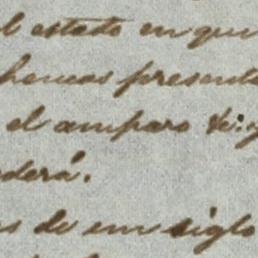 el estado en que
hemos presenta
el amparo &:y
derá.
os de un siglo